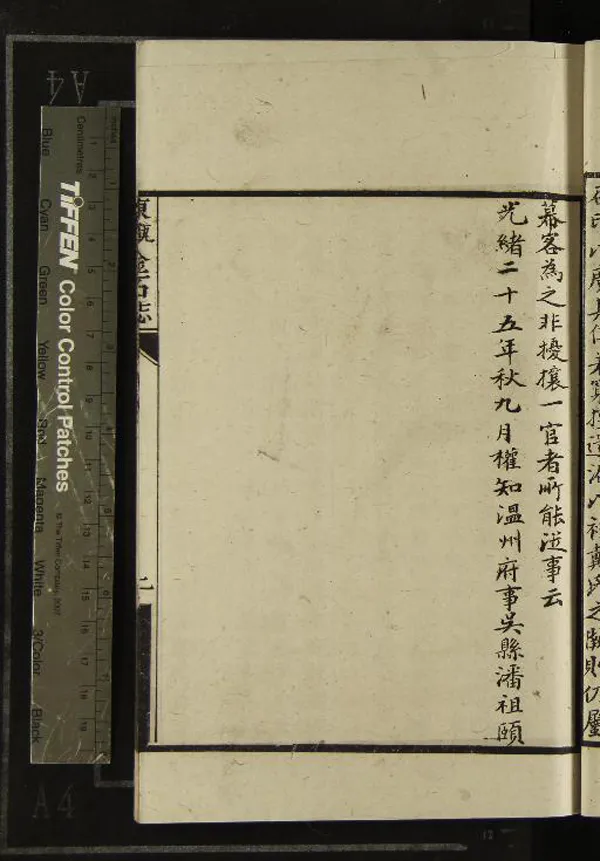 幕客為之非擾攘一官者所能從事云
光緒二十五年秋九月權知溫州府事吳縣潘祖頤
東甌金石志
二
A4
A4
TIFFEN Color Control Patches
© The Tiffen Company, 2007
Centimetres
Inches
Blue
Cyan
Green
Yellow
Red
Magenta
White
3/Color
Black